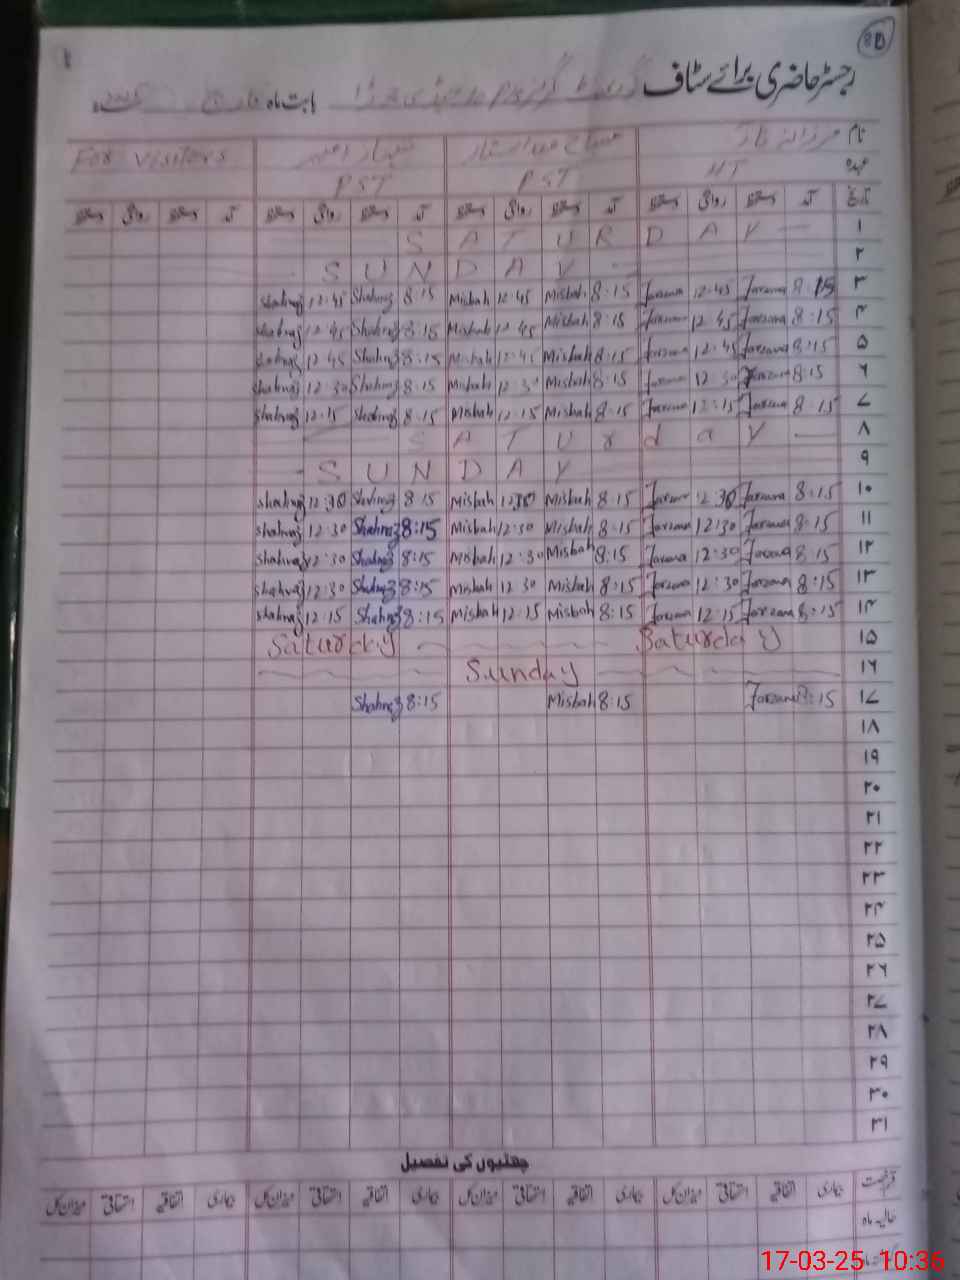 8D
رجسٹر حاضری برائے سٹاف بابت ماہ
نام
عہدہ HT PST PST For visitors
تاریخ آمد دستخط روانگی دستخط آمد دستخط روانگی دستخط آمد دستخط روانگی دستخط آمد دستخط روانگی دستخط
۱ SATURDAY
۲ SUNDAY
۳ 8:15 Farzana 12:45 Farzana 8:15 Misbah 12:45 Misbah 8:15 Shahnaz 12:45 Shahnaz
۴ 8:15 Farzana 12:45 Farzana 8:15 Misbah 12:45 Misbah 8:15 Shahnaz 12:45 Shahnaz
۵ 8:15 Farzana 12:45 Farzana 8:15 Misbah 12:45 Misbah 8:15 Shahnaz 12:45 Shahnaz
۶ 8:15 Farzana 12:30 Farzana 8:15 Misbah 12:30 Misbah 8:15 Shahnaz 12:30 Shahnaz
۷ 8:15 Farzana 12:15 Farzana 8:15 Misbah 12:15 Misbah 8:15 Shahnaz 12:15 Shahnaz
۸ SATUrdaY
۹ SUNDAY
۱۰ 8:15 Farzana 12:30 Farzana 8:15 Misbah 12:30 Misbah 8:15 Shahnaz 12:30 Shahnaz
۱۱ 8:15 Farzana 12:30 Farzana 8:15 Misbah 12:30 Misbah 8:15 Shahnaz 12:30 Shahnaz
۱۲ 8:15 Farzana 12:30 Farzana 8:15 Misbah 12:30 Misbah 8:15 Shahnaz 12:30 Shahnaz
۱۳ 8:15 Farzana 12:30 Farzana 8:15 Misbah 12:30 Misbah 8:15 Shahnaz 12:30 Shahnaz
۱۴ 8:15 Farzana 12:15 Farzana 8:15 Misbah 12:15 Misbah 8:15 Shahnaz 12:15 Shahnaz
۱۵ Saturday Saturday
۱۶ Sunday
۱۷ 8:15 Farzana 8:15 Misbah 8:15 Shahnaz
۱۸
۱۹
۲۰
۲۱
۲۲
۲۳
۲۴
۲۵
۲۶
۲۷
۲۸
۲۹
۳۰
۳۱
چھٹیوں کی تفصیل
قسم رخصت بیماری اتفاقیہ استحقاقی میزان کل بیماری اتفاقیہ استحقاقی میزان کل بیماری اتفاقیہ استحقاقی میزان کل بیماری اتفاقیہ استحقاقی میزان کل
حالیہ ماہ
17-03-25 10:36